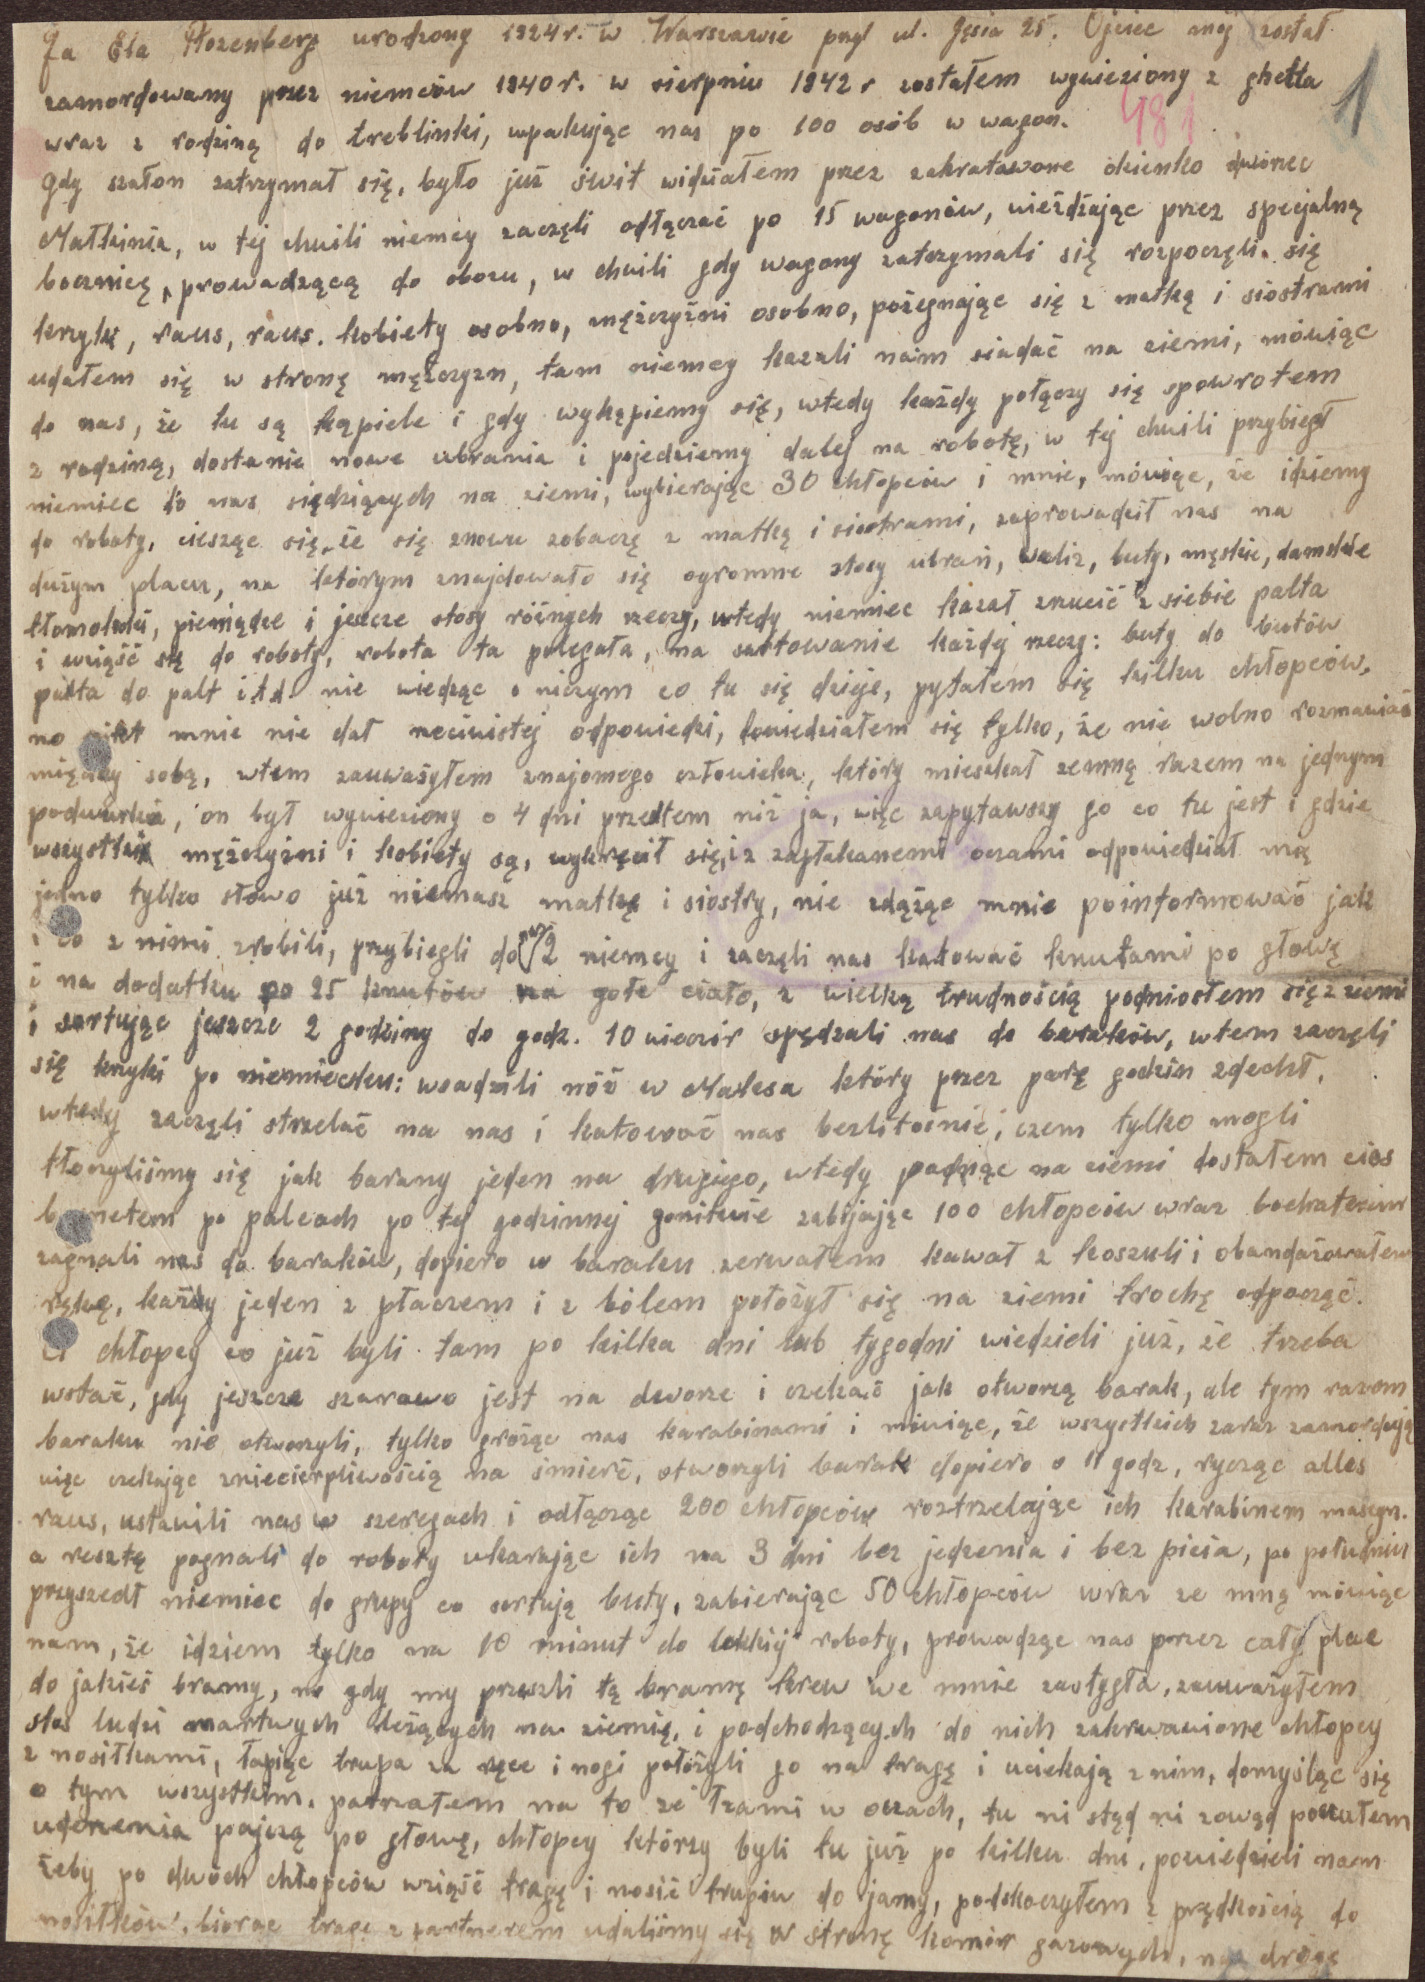 Ja Ela Rozenberg urodzony 1924 r. w Warszawie przy ul. Gęsia 25. Ojciec mój został
1
zamordowany przez niemców 1940 r. w sierpniu 1942 r zostałem wywieziony z ghetta
481
wraz z rodziną do treblinki, wpakując nas po 100 osób w wagon.
gdy szalon zatrzymał się, było już świt widziałem przez zakratowane okienko dworzec
Małkinia, w tej chwili niemcy zaczęli odłączać po 15 wagonów, wieżdżając przez specjalną
bocznicę, prowadzącą do obozu, w chwili gdy wagony zatrzymali się rozpoczęli się
krzyki, raus, raus. kobiety osobno, mężczyźni osobno, pożegnając się z matką i siostrami
udałem się w stronę mężczyzn, tam niemcy kazali nam siadać na ziemi, mówiąc
do nas, że tu są kąpiele i gdy wykąpiemy się, wtedy każdy połączy się spowrotem
z rodziną, dostanie nowe ubrania i pojedziemy dalej na robotę, w tej chwili przybiegł
niemiec do nas siędziących na ziemi, wybierając 30 chłopców i mnie, mówiąc, że idziemy
do roboty, ciesząc się, że się znowu zobaczę z matką i siostrami, zaprowadził nas na
dużym placu, na którym znajdowało się ogromne stosy ubrań, waliz, buty, męskie, damskie
tłomoki, pieniądze i jeszcze stosy różnych rzeczy, wtedy niemiec kazał zrzucić z siebie palta
i wziąść się do roboty, robota ta polegała, na sortowanie każdej rzeczy: buty do butów
palta do palt i.t.d. nie wiedząc o niczym co tu się dzieje, pytałem się kilku chłopców,
no nikt mnie nie dał rzeciwistej odpowiedzi, dowiedziałem się tylko, że nie wolno rozmawiać
między sobą, wtem zauważyłem znajomego człowieka, który mieszkał zemną razem na jednym
podwórku, on był wywieziony o 4 dni przedtem niż ja, więc zapytawszy go co tu jest i gdzie
wszystkie mężczyźni i kobiety są, wykręcił się, i z zapłakanemi oczami odpowiedział mię
jedno tylko słowo już niemasz matkę i siostry, nie zdążąc mnie poinformować jak
i co z nimi zrobili, przybiegli do nas 2 niemcy i zaczęli nas katować knutami po głowę
i na dodatku po 25 knutów na gołe ciało, z wielką trudnością podniosłem się z ziemi
i sortując jeszcze 2 godziny do godz. 10 wieczór spędzali nas do baraków, wtem zaczęli
się krzyki po niemiecku: wsadzili nóż w Maksa który przez parę godzin zdechł,
wtedy zaczęli strzelać na nas i katować nas bezlitośnie, czem tylko mogli
tłoczyliśmy się jak barany jeden na drugiego, wtedy padając na ziemi dostałem cios
bagnetem po palcach po tej godzinnej gonitwie zabijając 100 chłopców wraz bochaterim
zagnali nas do baraków, dopiero w baraku zerwałem kawał z koszuli i obandażowałem
rękę, każdy jeden z płaczem i z bólem położył się na ziemi trochę odpocząć.
chłopcy co już byli tam po kilka dni lub tygodni wiedzieli już, że trzeba
wstać, gdy jeszcze szarawo jest na dworze i czekać jak otworzą barak, ale tym razem
baraku nie otworzyli, tylko grożąc nas karabinami i mówiąc, że wszystkich zaraz zamordują
więc czekając zniecierpliwością na śmierć, otworzyli barak dopiero o 11 godz, rycząc alles
raus, ustawili nas w szeregach i odłącząc 200 chłopców roztrzelając ich karabinem maszyn.
a resztę pognali do roboty ukarając ich na 3 dni bez jedzenia i bez picia, po południu
przyszedł niemiec do grupy co sortują buty, zabierając 50 chłopców wraz ze mną mówiąc
nam, że idziem tylko na 10 minut do lekkij roboty, prowadząc nas przez cały plac
do jakieś bramy, no gdy my przeszli tą bramę krew we mnie zastygła, zauważyłem
stos ludzi martwych leżących na ziemię, i podchodzących do nich zakrwawione chłopcy
z nosiłkami, łapiąc trupa za ręce i nogi położyli go na tragę i uciekają z nim, domyśląc się
o tym wszystkim, patrzałem na to ze łzami w oczach, tu ni stąd ni zowąd poczułem
uderzenia pajczą po głowę, chłopcy którzy byli tu już po kilku dni, powiedzieli nam
żeby po dwóch chłopców wziąść tragę i nosić trupów do jamy, podskoczyłem z prędkością do
nosiłków, biorąc tragę z partnerem udaliśmy się w stronę komór gazowych, na drogę